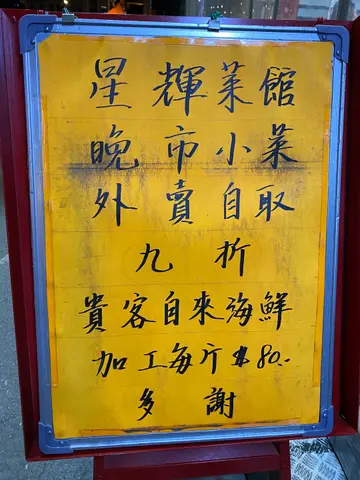 星輝菜館
晚市小菜
外賣自取
九折
貴客自來海鮮
加工每斤$80.-
多謝